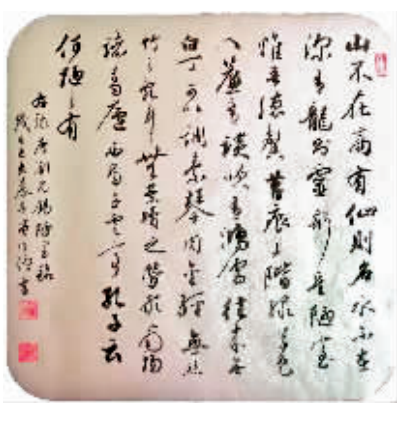 山不在高有仙则名水不在
深有龍则靈斯是陋室
惟吾德馨苔痕上階绿草色
入簾青談笑有鴻儒往来無
白丁可以调素琴阅金經無絲
竹之乱耳無案牍之劳形南陽
诸葛廬西蜀子雲亭孔子云
何陋之有
唐刘禹锡陋室铭